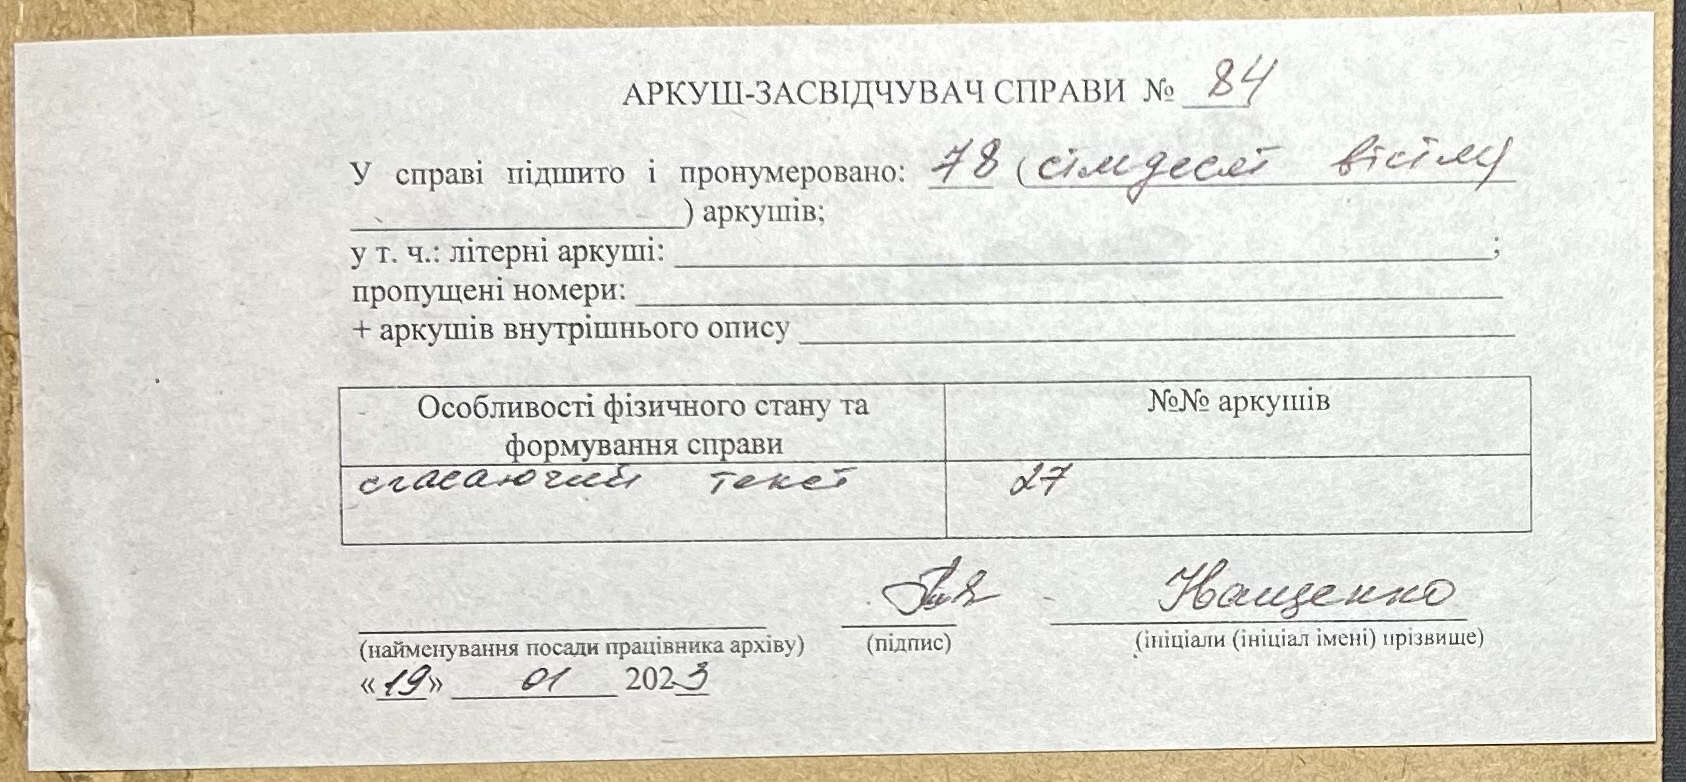 АРКУШ-ЗАСВІДЧУВАЧ СПРАВИ № 84
У справі підшито і пронумеровано: 78 (сімдесят вісім)
) аркушів;
у т. ч.: літерні аркуші: ;
пропущені номери:
+ аркушів внутрішнього опису
Особливості фізичного стану та формування справи
№№ аркушів
згасаючий текст
27
Іващенко
(найменування посади працівника архіву) (підпис) (ініціали (ініціал імені) прізвище)
«19» 01 2023